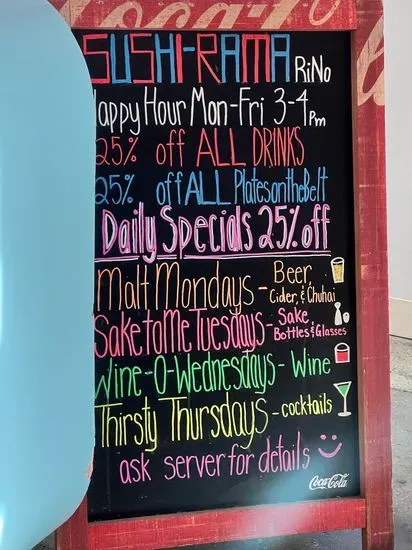 Coca-Cola
SUSHI-RAMA RiNo
Happy Hour Mon-Fri 3-4pm
25% off ALL DRINKS
25% off ALL Plates on the Belt
Daily Specials 25% off
Malt Mondays - Beer, Cider, & Chuhai
Sake to Me Tuesdays - Sake Bottles & Glasses
Wine-O-Wednesdays - Wine
Thirsty Thursdays - cocktails
ask server for details
Coca-Cola